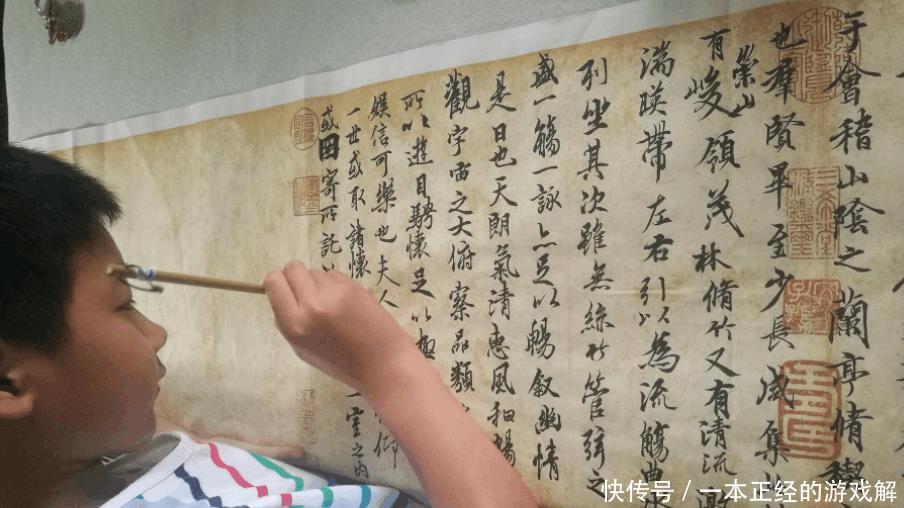 于會稽山陰之蘭亭脩禊
也羣賢畢至少長咸集
崇山
有峻領茂林脩竹又有清流激
湍暎帶左右引以為流觴曲水
列坐其次雖無絲竹管弦之
盛一觴一詠亦足以暢叙幽情
是日也天朗氣清惠風和暢
觀宇宙之大俯察品類
所以遊目騁懷足以極
娛信可樂也夫人 仰
一世或取諸懷 一室之內
或因寄所託
快传号/一本正经的游戏解